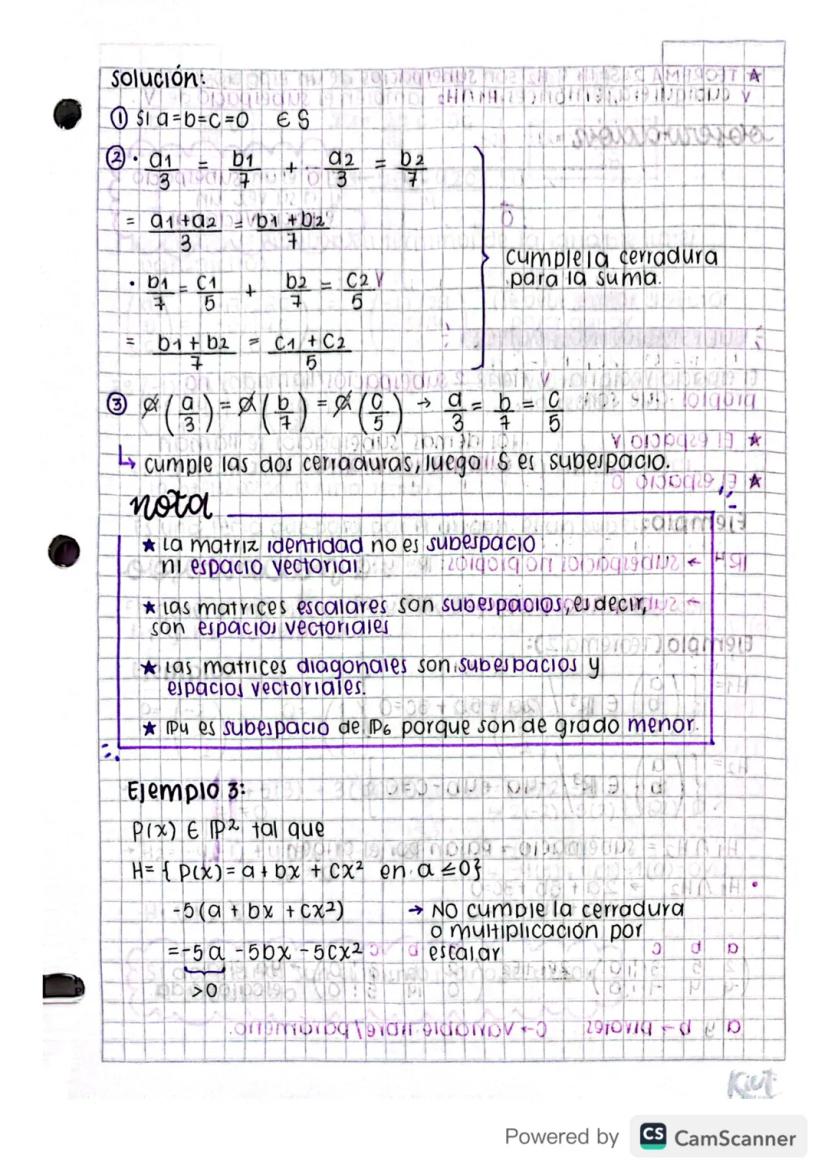 Solución:
① Si a=b=c=0 ∈ S
② · a1/3 = b1/7 + a2/3 = b2/7
= a1+a2/3 = b1+b2/7
cumple la cerradura
para la suma.
· b1/7 = c1/5 + b2/7 = c2/5
= b1+b2/7 = c1+c2/5
③ α(a/3) = α(b/7) = α(c/5) → a/3 = b/7 = c/5
↳ cumple las dos cerraduras, luego S es subespacio.
nota
★ La matriz identidad no es subespacio
ni espacio vectorial.
★ Las matrices escalares son subespacios, es decir,
son espacios vectoriales
★ Las matrices diagonales son subespacios y
espacios vectoriales.
★ IP4 es subespacio de IP6 porque son de grado menor.
Ejemplo 3:
P(x) ∈ IP² tal que
H= { P(x) = a + bx + cx² en a ≤0}
-5(a + bx + cx²) → NO cumple la cerradura
o multiplicación por
= -5a -5bx -5cx² escalar
>0
Kiut
Powered by CS CamScanner